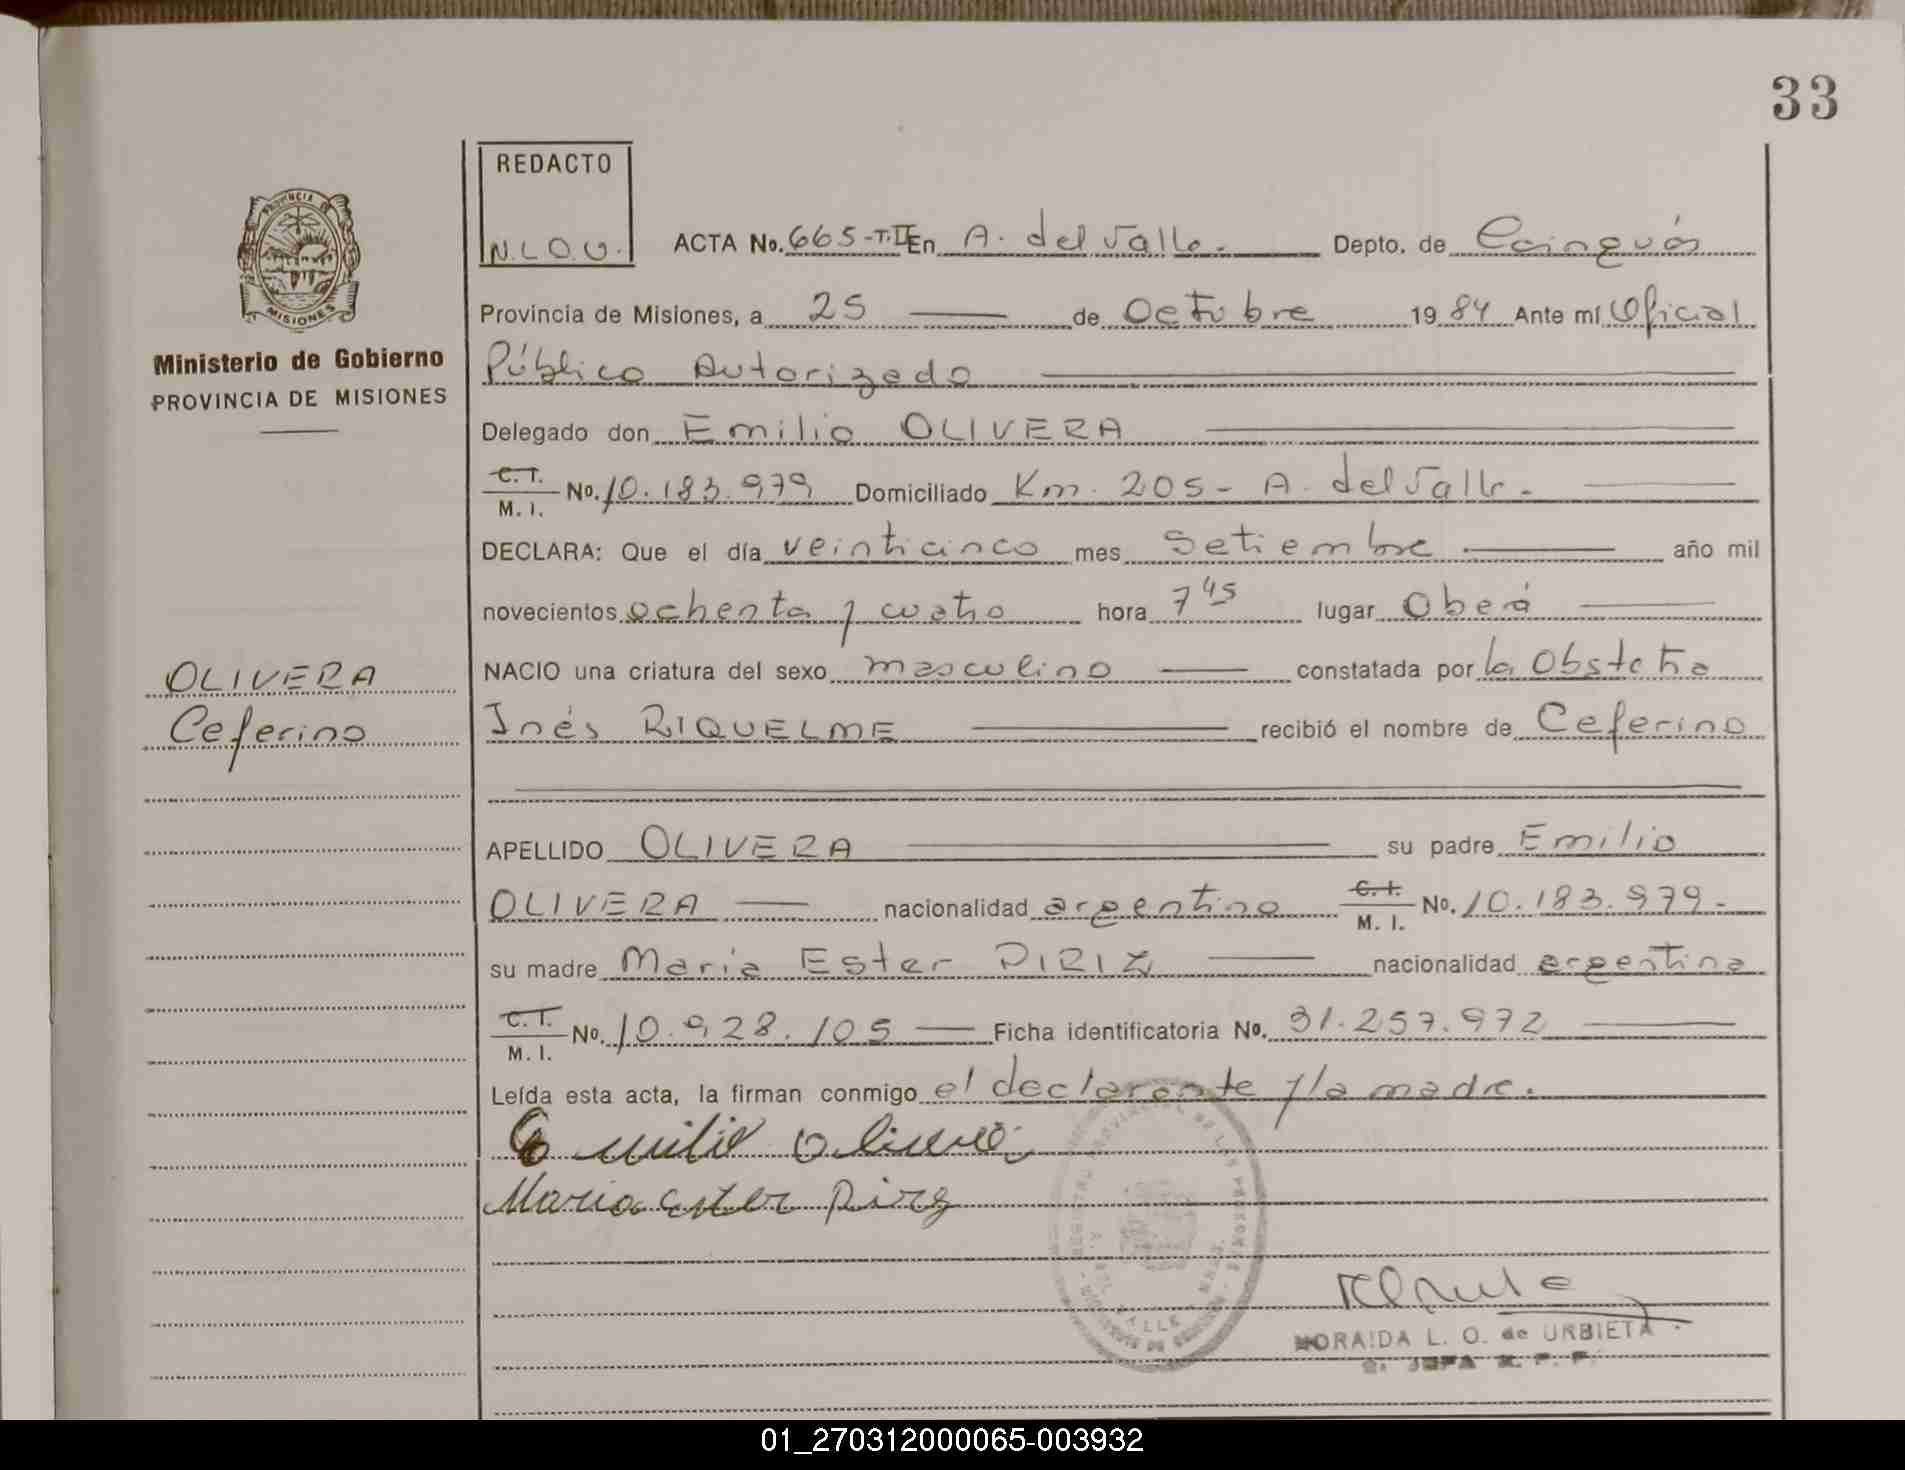 33
REDACTO
N.L.O.U.
ACTA No. 665-T.II En A. del Valle.- Depto. de Cainguás
Provincia de Misiones, a 25 de Octubre 1984 Ante mí Oficial
Público Autorizado
Delegado don Emilio OLIVERA
C. I. M. I. No. 10.183.979 Domiciliado Km. 205- A. del Valle.-
DECLARA: Que el día veinticinco mes Setiembre año mil
novecientos ochenta y cuatro hora 7 45 lugar Oberá
NACIO una criatura del sexo masculino constatada por la Obstetra
Inés RIQUELME recibió el nombre de Ceferino
APELLIDO OLIVERA su padre Emilio
OLIVERA nacionalidad argentino C. I. M. I. No. 10.183.979.-
su madre María Ester PIRIZ nacionalidad argentina
C. I. M. I. No. 10.928.105 Ficha identificatoria No. 31.257.972
Leída esta acta, la firman conmigo el declarante y la madre.
Emilio Olivera
Maria Ester Pirez
NORAIDA L. O. de URBIETA
PROVINCIA
MISIONES
Ministerio de Gobierno
PROVINCIA DE MISIONES
OLIVERA
Ceferino
01_270312000065-003932